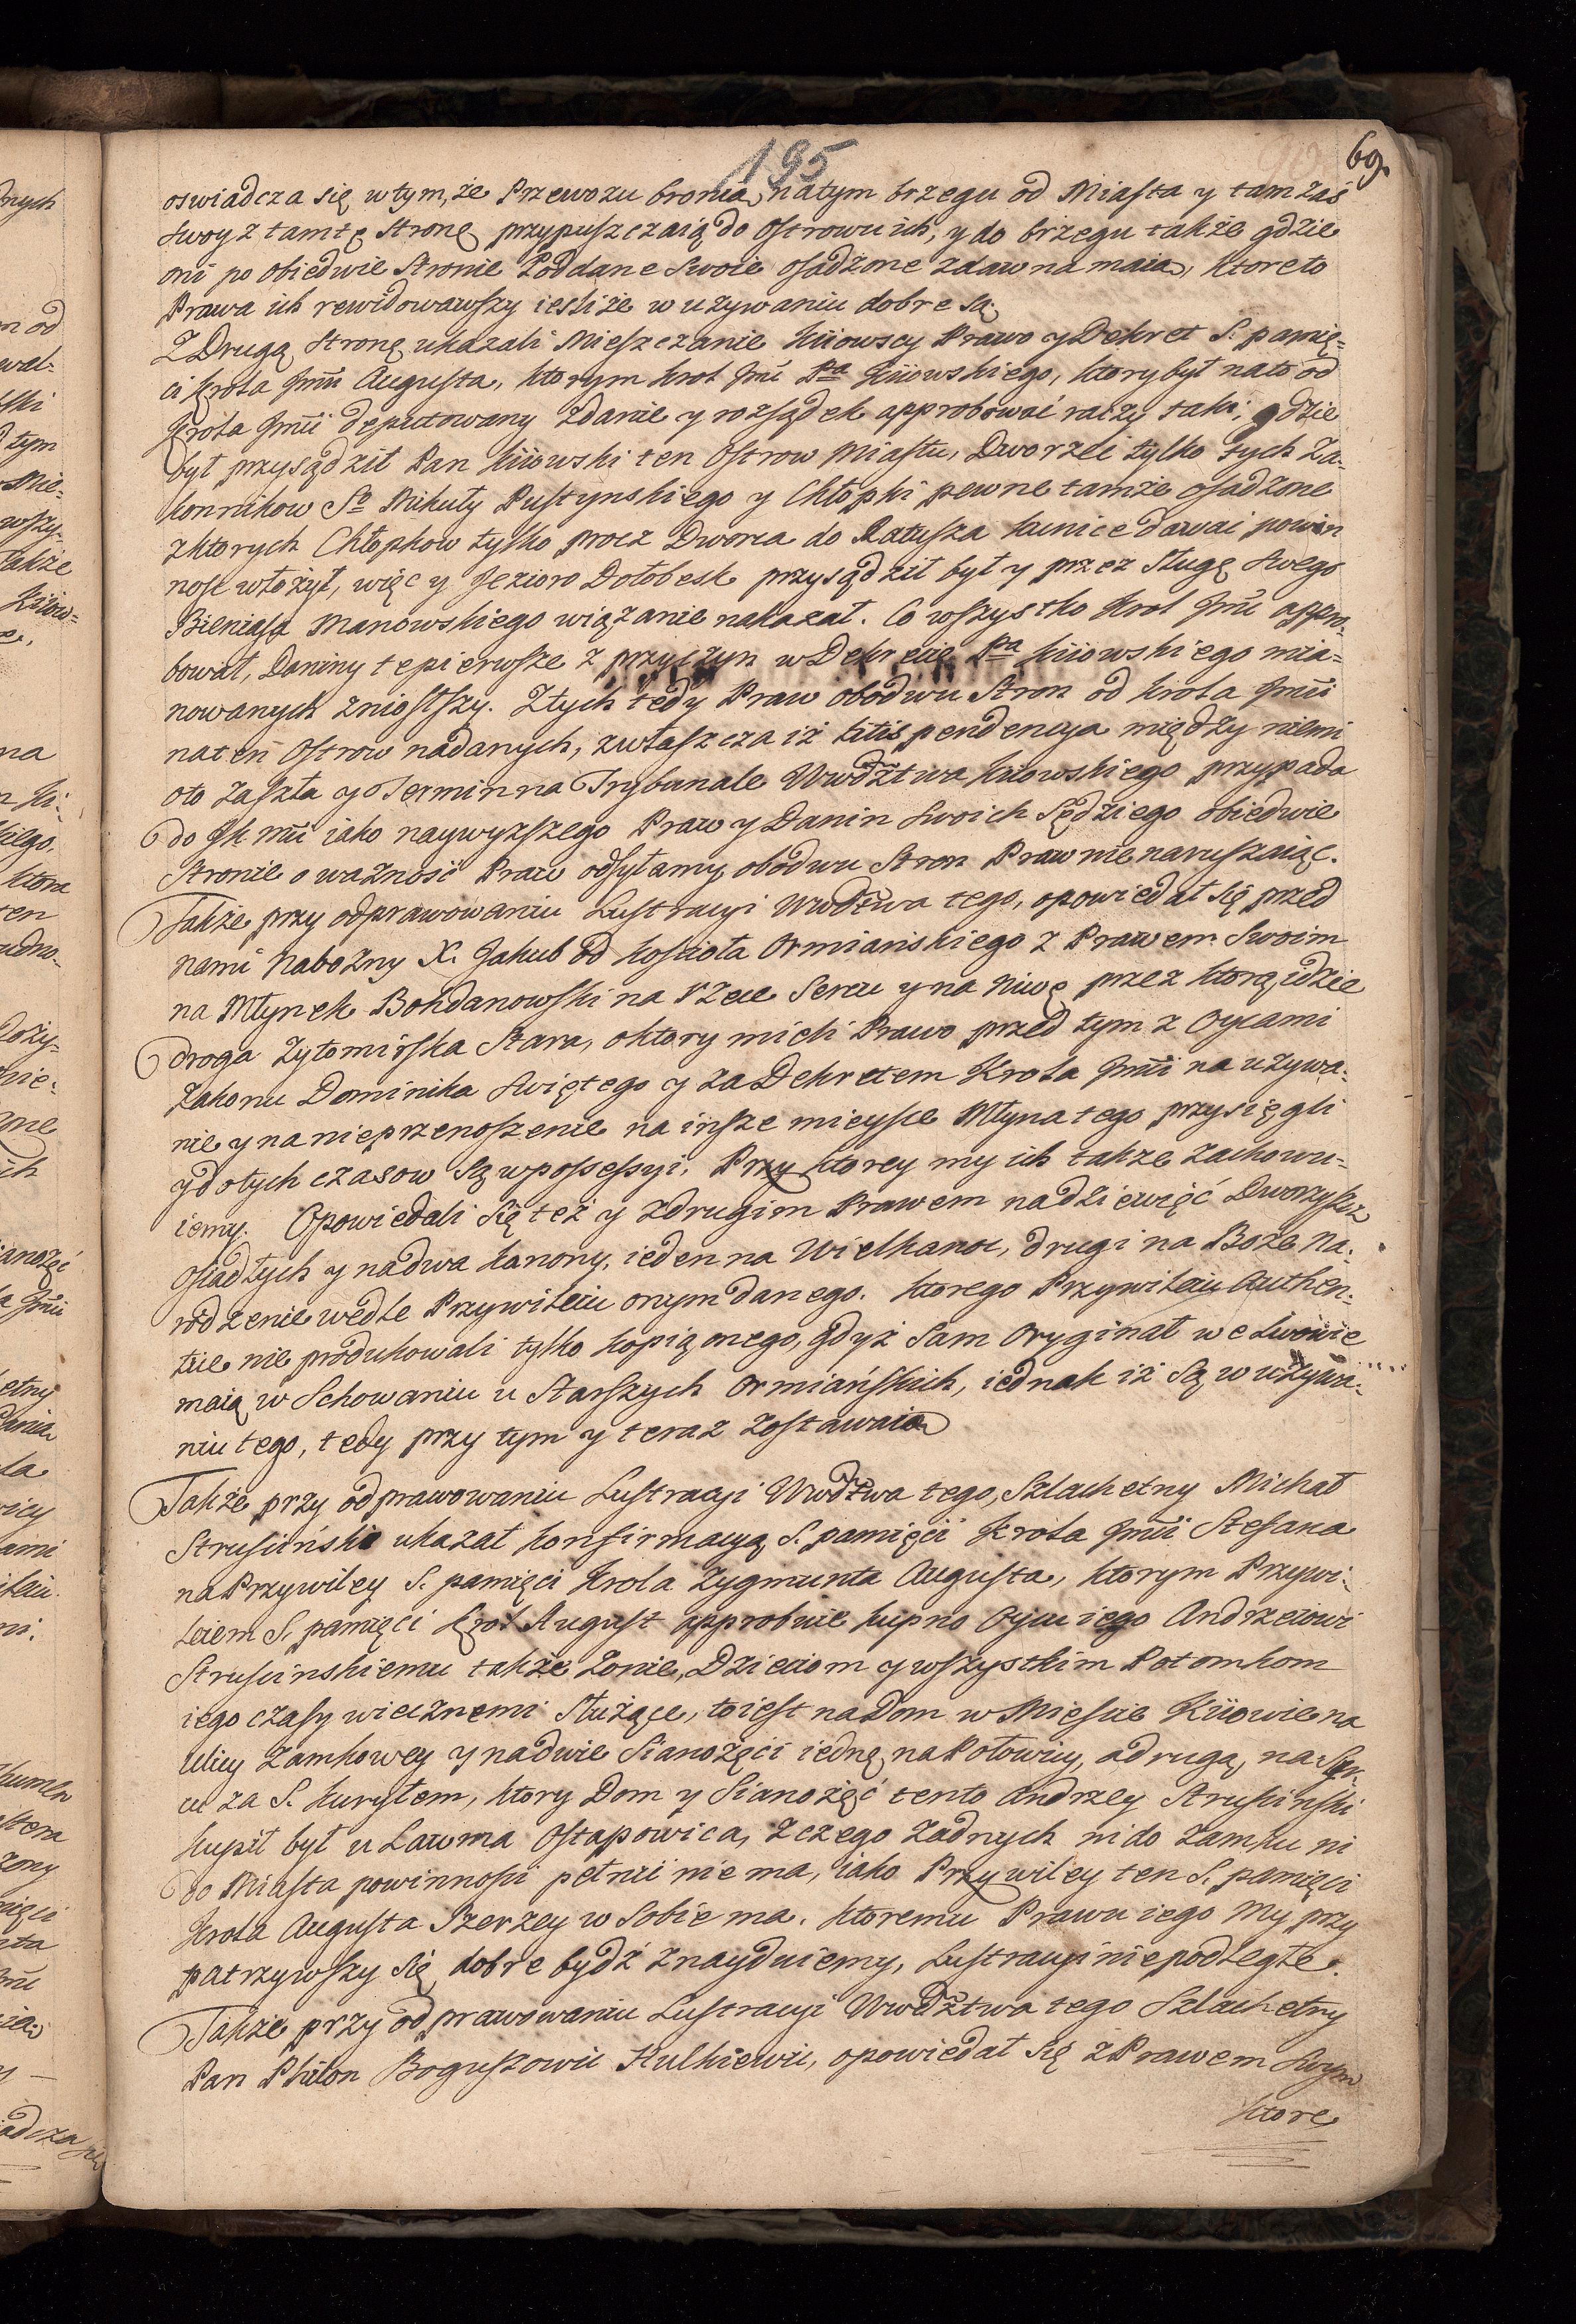 195
69.
oswiadcza się w tym, że Przewozu bronią, na tym brzegu od Miasta y tam zaś
swoy z tamtę stronę przypuszczaią do Ostrowu ich, y do brzegu także gdzie
oni po obiedwie stronie Poddane swoie osadzone zdawna maią, ktore to
Prawa ich rewidowawszy iesliże w używaniu dobre są.
Z Drugą stronę ukazali Mieszczanie Kiiowscy Prawo y Dekret S. pamię=
ci Krola Jmći Augusta, ktorym Krol Jmć Pna Kiiowskiego, ktory był na to od
Krola Jmći deputowany zdanie y rozsądek approbować raczy taki, gdzie
był przysądził Pan Kiiowski ten Ostrow Miastu, Dworzec tylko tych Za=
konnikow So Mikuły Pustynskiego y Chłopki pewne tamże osadzone
z ktorych Chłopkow tylko procz Dworca do Ratusza kunice dawai powin
nosc włożył, więc y Jezioro Dołobesk przysądził był y przez Sługę swego
Bieniasza Manowskiego wiązanie nakazał. Co wszystko Krol Jmć appro=
bował, Daniny te pierwsze z przyczyn w Dekrecie Pna Kiiowskiego mia=
nowanych znioslszy. Z tych tedy Praw obodwu Stron od Krola Jmći
na ten Ostrow nadanych, zwłaszcza iż litis pendencya między niemi
o to zaszła y Termin na Trybunale Wwdztwa Kiiowskiego przypada
do JKmći iako naywyzszego Praw y Danin swoich Sędziego obiedwie
stronie o ważność Praw odsyłamy, obodwu stron Praw nie naruszaiąc.
Także przy odprawowaniu Lustracyi Wwdztwa tego, opowiedał się przed
nami Nabożny X. Jakub od kościoła Ormiańskiego z Prawem swoim
na Młynek Bohdanowski na rzece Sercu y na Niwę przez ktorą idzie
droga Zytomirska Stara, o ktory mieli Prawo przed tym z Oycami
Zakonu Dominika Swiętego y za Dekretem Krola Jmći na używa=
nie y na nieprzenoszenie na insze mieysce Młyna tego przysięgli
y do tych czasow są w possessyi. Przy ktorey my ich także zachowu=
iemy. Opowiedali się też y z drugim Prawem na dziewięć Dworzyszcz
osiadłych y na dwa kanony, ieden na Wielkanoc, drugi na Boże Na=
rodzenie wedle Przywileiu onym danego. Ktorego Przywileiu Authen=
tice nie produkowali tylko kopią onego, gdyż sam Oryginał we Lwowie
maią w Schowaniu u Starszych Ormiańskich, iednak iż są w używa=
niu tego, tedy przy tym y teraz zostawaią
Także przy odprawowaniu Lustracyi Wwdztwa tego, Szlachetny Michał
Strusiński ukazał konfirmacyą S. pamięci Krola Jmći Stefana
na Przywiley S. pamięci Krola Zygmunta Augusta, ktorym Przywi=
leiem S. pamięci Krol August approbuie kupno Oycu iego Andrzeiowi
Strusinskiemu także Zonie, Dzieciom y wszystkim Potomkom
iego czasy wiecznemi służące, to iest na Dom w Miescie Kiiowie na
Ulicy Zamkowey y na dwie Sianożęci iedną na Połowicy, a drugą na Syr=
cu za S. Kuryłem, ktory Dom y Sianożęć tento Andrzey Strusinski
kupił był u Lawrina Ostapowica, z czego żadnych ni do Zamku ni
do Miasta powinnosci pełnić nie ma, iako Przywiley ten S. pamięci
Krola Augusta szerzey w sobie ma. Ktoremu Prawu iego My przy
patrzywszy się, dobre bydź znayduiemy, Lustracyi nie podległe.
Także przy odprawowaniu Lustracyi Wwdztwa tego Szlachetny
Pan Philon Boguszowic Hulkiewic, opowiedał się z Prawem swym
ktore